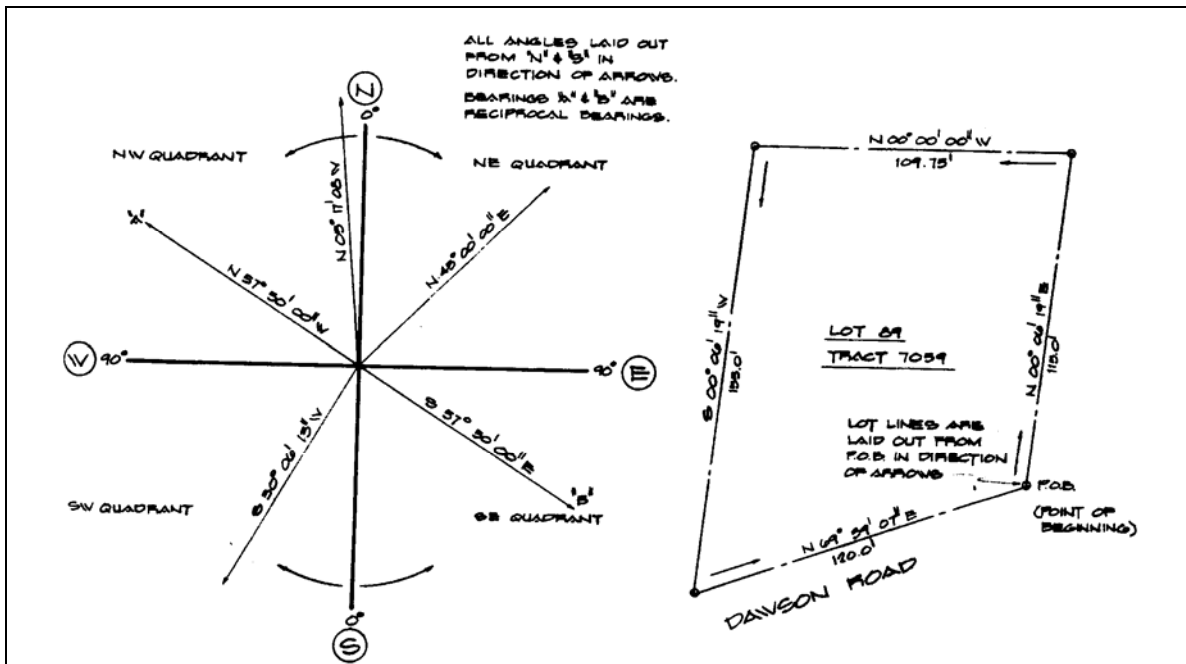 ALL ANGLES LAID OUT
FROM "N" & "S" IN
DIRECTION OF ARROWS.
BEARINGS "A" & "B" ARE
RECIPROCAL BEARINGS.
N
0°
NW QUADRANT
NE QUADRANT
"A"
N 45° 00' 00" E
N 57° 50' 00" W
W 90°
90° E
S 57° 50' 00" E
S 30° 06' 13" W
"B"
SW QUADRANT
SE QUADRANT
0°
S
N 00° 00' 00" W
109.75'
S 00° 06' 19" W
155.0'
LOT 89
TRACT 7059
N 00° 06' 19" E
115.0'
LOT LINES ARE
LAID OUT FROM
P.O.B. IN DIRECTION
OF ARROWS
P.O.B.
(POINT OF
BEGINNING)
N 69° 39' 07" E
120.0'
DAWSON ROAD